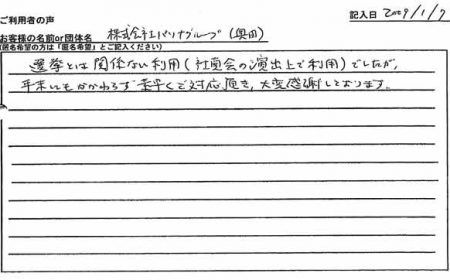 ご利用者の声
記入日 2009/1/7
お客様の名前or団体名 株式会社エバリナグループ (奥田)
(匿名希望の方は「匿名希望」とご記入ください)
選挙とは関係ない利用(社員会の演出上で利用)でしたが、
年末にもかかわらず素早くご対応頂き、大変感謝しております。